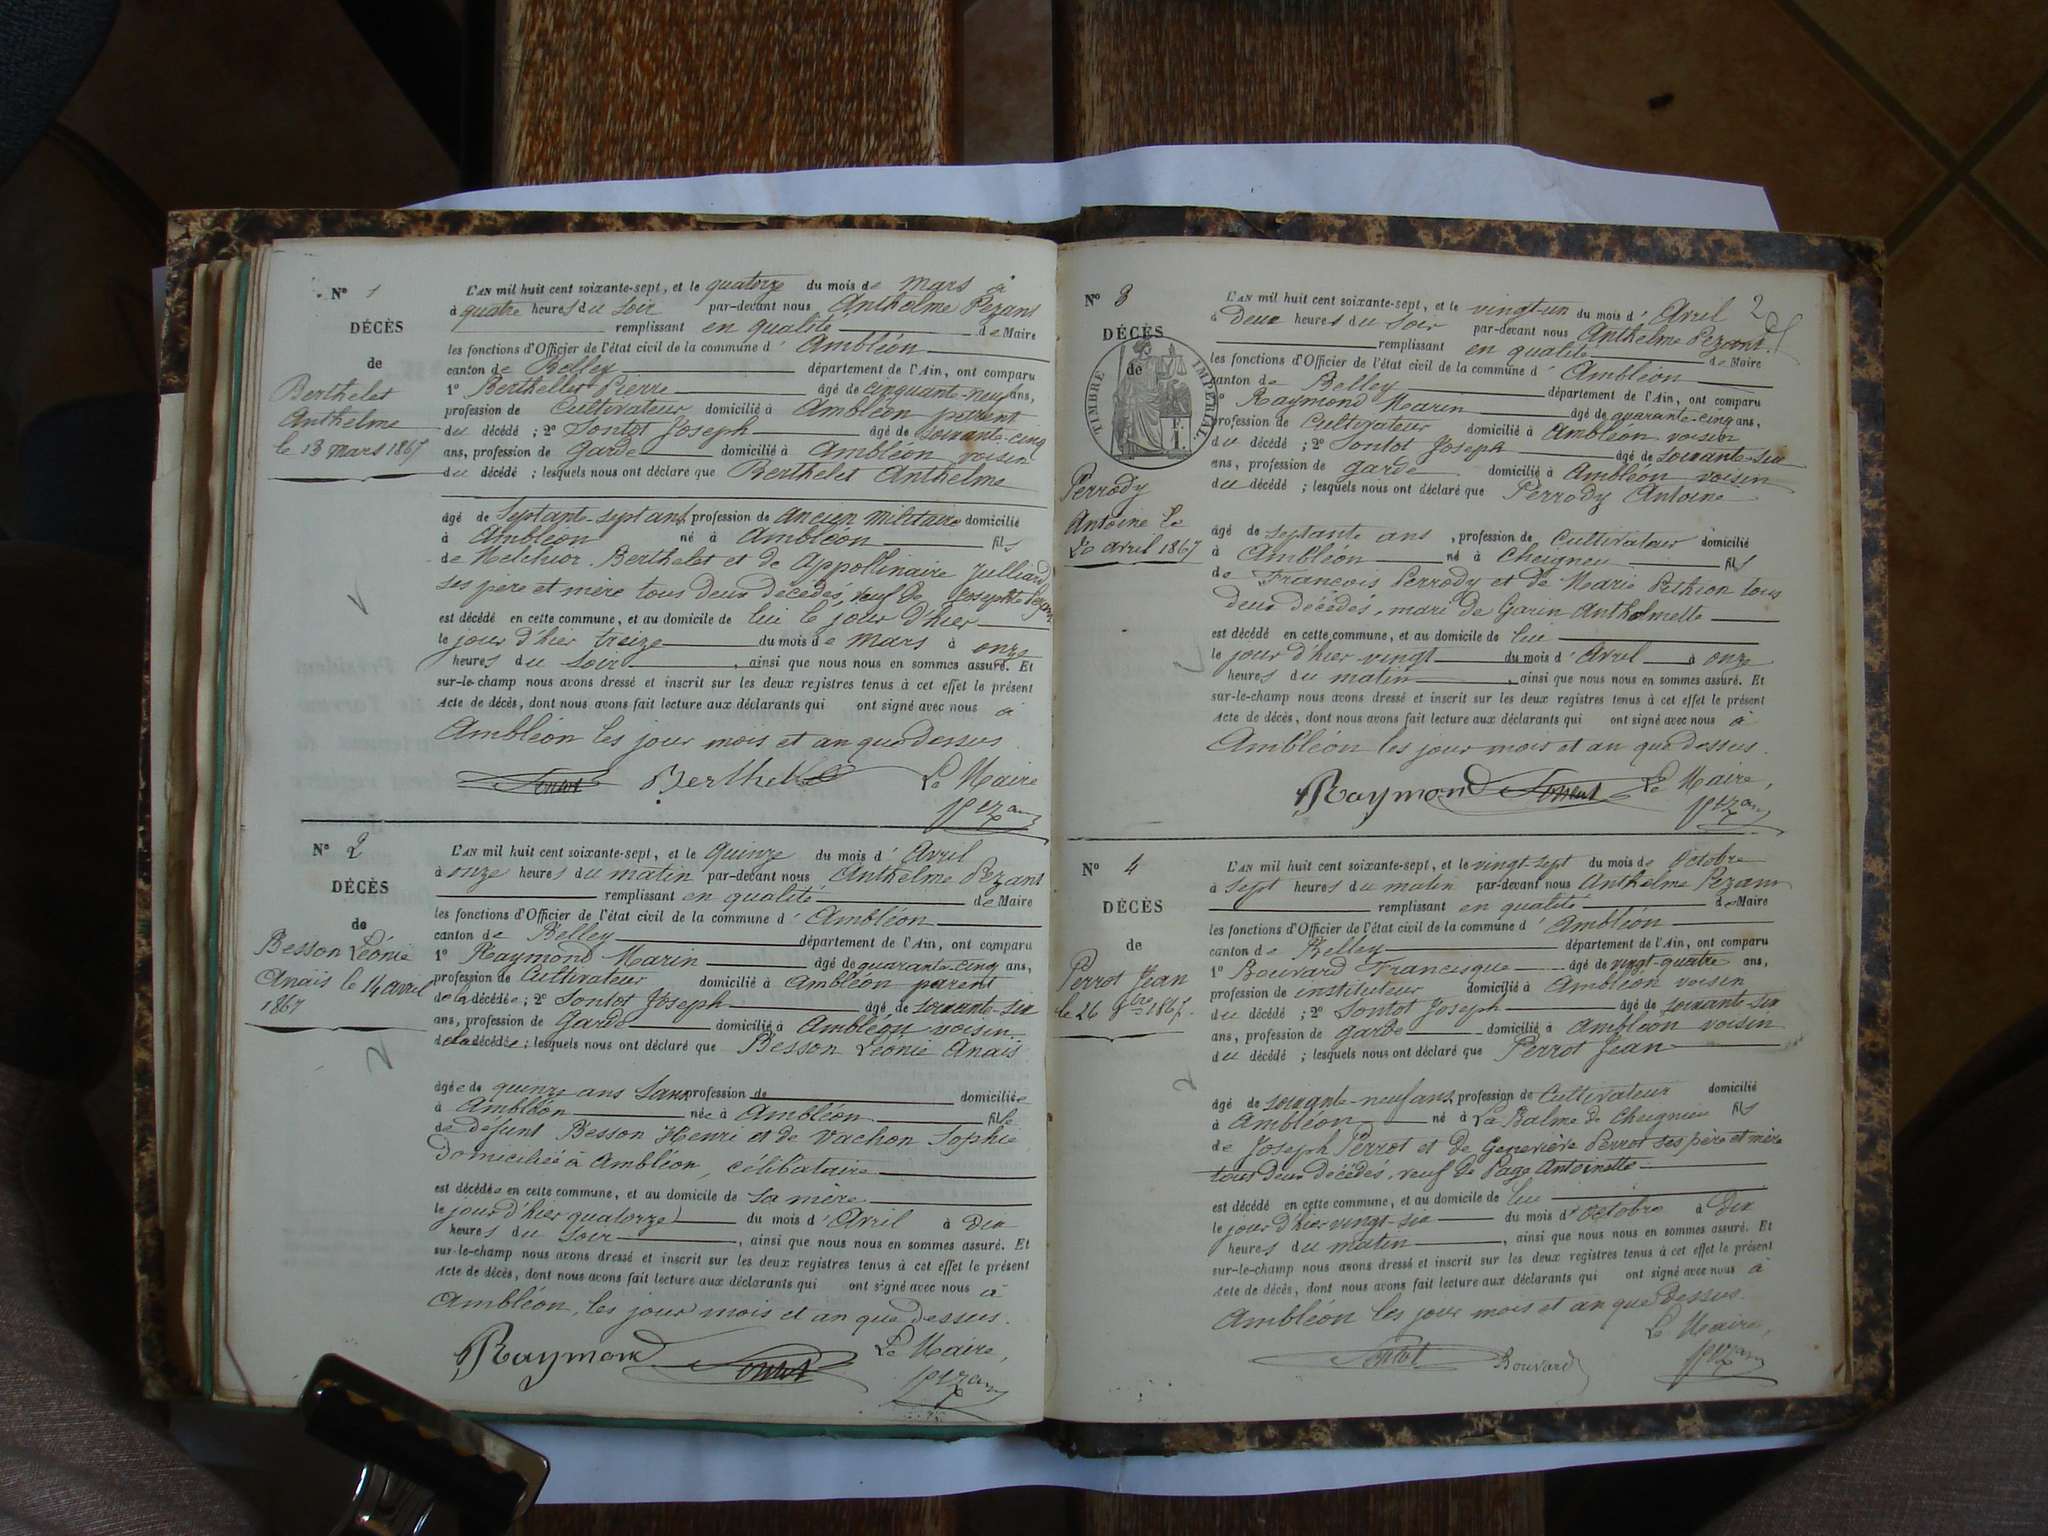 N° 1
DÉCÈS
de
Berthelet
Anthelme
le 13 mars 1867
L'AN mil huit cent soixante-sept, et le quatorze du mois de mars à
à quatre heures du soir par-devant nous Anthelme Pezant
remplissant en qualité de Maire
les fonctions d'Officier de l'état civil de la commune d' Ambléon
canton de Belley département de l'Ain, ont comparu
1° Berthellet Pierre âgé de cinquante-neuf ans,
profession de Cultivateur domicilié à Ambléon parent
du décédé ; 2° Sontot Joseph âgé de soixante-cinq
ans, profession de garde domicilié à Ambléon voisin
du décédé ; lesquels nous ont déclaré que Berthelet Anthelme
âgé de Septante-sept ans, profession de ancien militaire domicilié
à Ambléon né à Ambléon fils
de Melchior Berthelet et de Appollinaire Julliard
ses père et mère tous deux décédés, veuf de Josephte Pezant
est décédé en cette commune, et au domicile de lui le jour d'hier
le jour d'hier treize du mois de mars à onze
heures du soir, ainsi que nous nous en sommes assuré. Et
sur-le-champ nous avons dressé et inscrit sur les deux registres tenus à cet effet le présent
Acte de décès, dont nous avons fait lecture aux déclarants qui ont signé avec nous à
Ambléon les jour mois et an que dessus.
Sontot Berthelet Le Maire
Pezant
N° 2
DÉCÈS
de
Besson Léonie
Anaïs le 14 avril
1867
L'AN mil huit cent soixante-sept, et le quinze du mois d' Avril
à onze heures du matin par-devant nous Anthelme Pezant
remplissant en qualité de Maire
les fonctions d'Officier de l'état civil de la commune d' Ambléon
canton de Belley département de l'Ain, ont comparu
1° Raymond Marin âgé de quarante-cinq ans,
profession de Cultivateur domicilié à Ambléon parent
de la décédée ; 2° Sontot Joseph âgé de soixante-six
ans, profession de Garde domicilié à Ambléon voisin
de la décédée ; lesquels nous ont déclaré que Besson Léonie Anaïs
âgée de quinze ans sans profession de domiciliée
à Ambléon née à Ambléon fille
de défunt Besson Henri et de Vachon Sophie
domiciliée à Ambléon, célibataire
est décédée en cette commune, et au domicile de sa mère
le jour d'hier quatorze du mois d' Avril à dix
heures du soir, ainsi que nous nous en sommes assuré. Et
sur-le-champ nous avons dressé et inscrit sur les deux registres tenus à cet effet le présent
Acte de décès, dont nous avons fait lecture aux déclarants qui ont signé avec nous à
Ambléon, les jour mois et an que dessus.
Raymond Sontot Le Maire,
Pezant
2
N° 3
DÉCÈS
de
TIMBRE IMPÉRIAL
1 F.
Perrody
Antoine le
20 avril 1867
L'AN mil huit cent soixante-sept, et le vingt-un du mois d' Avril
à Deux heures du soir par-devant nous Anthelme Pezant
remplissant en qualité de Maire
les fonctions d'Officier de l'état civil de la commune d' Ambléon
canton de Belley département de l'Ain, ont comparu
1° Raymond Marin âgé de quarante-cinq ans,
profession de Cultivateur domicilié à Ambléon voisin
du décédé ; 2° Sontot Joseph âgé de soixante-six
ans, profession de garde domicilié à Ambléon voisin
du décédé ; lesquels nous ont déclaré que Perrody Antoine
âgé de septante ans, profession de Cultivateur domicilié
à Ambléon né à Cheigneu fils
de François Perrody et de Marie tous
deux décédés, mari de Garin Anthelmette
est décédé en cette commune, et au domicile de lui
le jour d'hier vingt du mois d' Avril à onze
heures du matin, ainsi que nous nous en sommes assuré. Et
sur-le-champ nous avons dressé et inscrit sur les deux registres tenus à cet effet le présent
Acte de décès, dont nous avons fait lecture aux déclarants qui ont signé avec nous à
Ambléon les jour mois et an que dessus.
Raymond Sontot Le Maire,
Pezant
N° 4
DÉCÈS
de
Perrot Jean
le 26 8bre 1867.
L'AN mil huit cent soixante-sept, et le vingt-sept du mois de Octobre
à sept heures du matin par-devant nous Anthelme Pezant
remplissant en qualité de Maire
les fonctions d'Officier de l'état civil de la commune d' Ambléon
canton de Belley département de l'Ain, ont comparu
1° Bouvard Francisque âgé de vingt-quatre ans,
profession de instituteur domicilié à Ambléon voisin
du décédé ; 2° Sontot Joseph âgé de soixante-six
ans, profession de garde domicilié à Ambléon voisin
du décédé ; lesquels nous ont déclaré que Perrot Jean
âgé de soixante-neuf ans, profession de Cultivateur domicilié
à Ambléon né à La Balme de Cheignieu fils
de Joseph Perrot et de Geneviève Perrot ses père et mère
tous deux décédés, veuf de Page Antoinette
est décédé en cette commune, et au domicile de lui
le jour d'hier vingt-six du mois d' octobre à Dix
heures du matin, ainsi que nous nous en sommes assuré. Et
sur-le-champ nous avons dressé et inscrit sur les deux registres tenus à cet effet le présent
Acte de décès, dont nous avons fait lecture aux déclarants qui ont signé avec nous à
Ambléon les jour mois et an que dessus.
Sontot Bouvard Le Maire,
Pezant